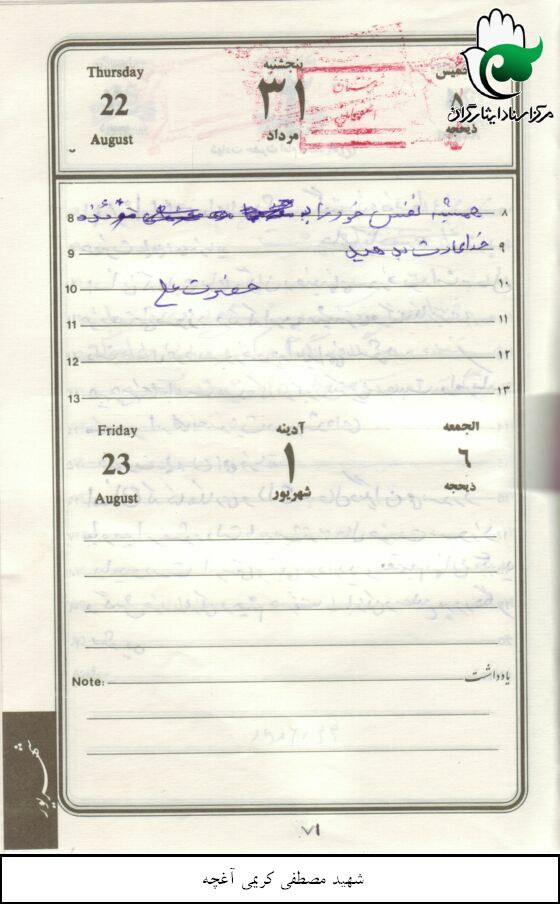 مرکز اسناد ایثارگران
Thursday پنجشنبه الخمیس
22 ۳۱ ۵
August مرداد ذیحجه
8 همیشه نفس خود را به ۸
9 خدا عادت بدهید ۹
10 حضرت علی ۱۰
11 ۱۱
12 ۱۲
13 ۱۳
Friday آدینه الجمعه
23 ۱ ٦
August شهریور ذیحجه
Note: یادداشت
شهریور
۷۱
شهید مصطفی کریمی آغچه